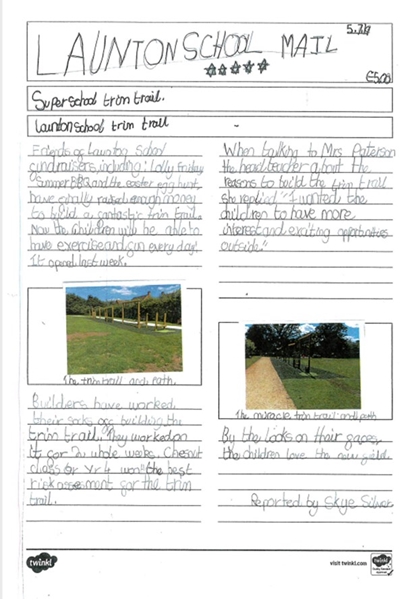 LAUNTON SCHOOL MAIL
£5.00
Super school trim trail.
Launton school trim trail
Friends of Launton School
fundraisers, including: Lolly friday,
Summer BBQ and the easter egg hunt,
have finally raised enough money
to build a fantastic trim trail.
Now the children will be able to
have exercise and fun every day!
It opened last week.
The trim trail and path.
Builders have worked
their socks off building the
trim trail. They worked on
it for 2 whole weeks. Chesnut
class or Yr 4 won the best
risk assesment for the trim
trail.
When talking to Mrs Paterson
the headteacher about the
reasons to build the trim trail
she replied "I wanted the
children to have more
interest and exciting opportunities
outside."
The miracle trim trail and path
By the looks on thair faces,
the children love the new field.
Reported by Skye Silver
twinkl
visit twinkl.com